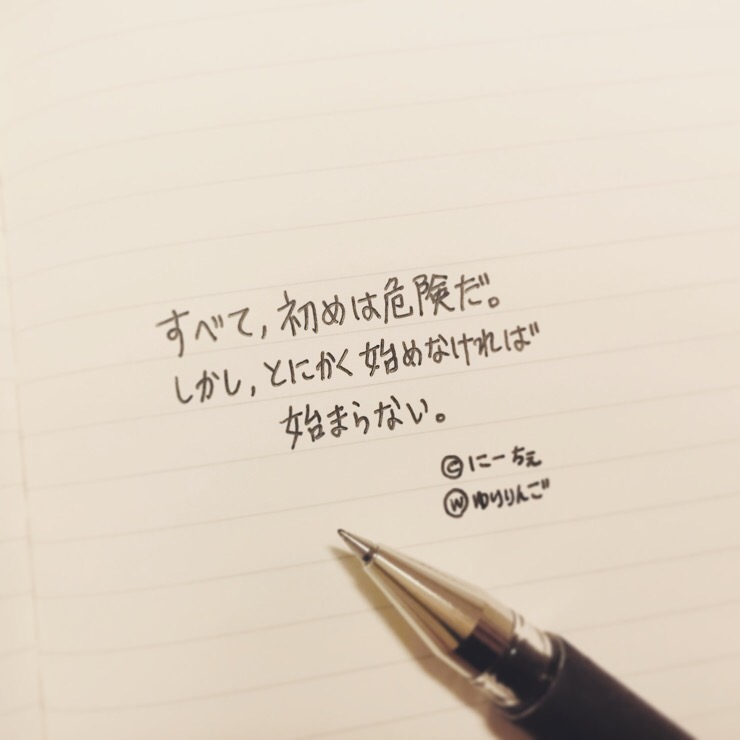 すべて,初めは危険だ。
しかし,とにかく始めなければ
始まらない。
Ⓒにーちぇ
Ⓦゆりりんご